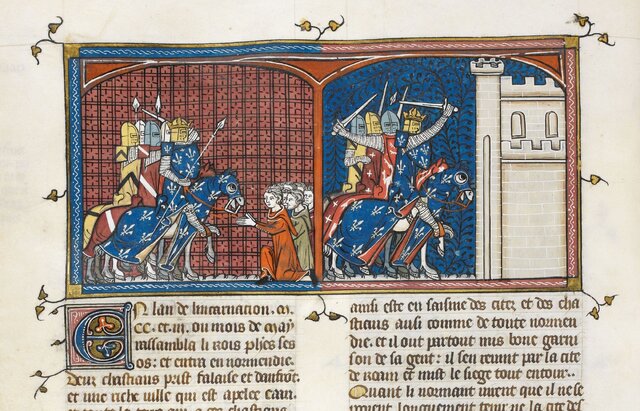 En lan de lincarnation. m.
CC. et. iii. ou mois de may
rassambla li rois phes ses
os: et entra en normendie.
Deux chastiaus prist falaise et
et une riche ville qui est apelee caan.
et toute la terre
ainsi este en saisine des citez et des cha
stiaus ausi comme de toute normen
die. et il out partout mis bone garni
son de sa gent: il sen revint par la cite
de roam et mist le siege tout entour.
Quant li normant virent que il ne se
longuement tenir la cite de